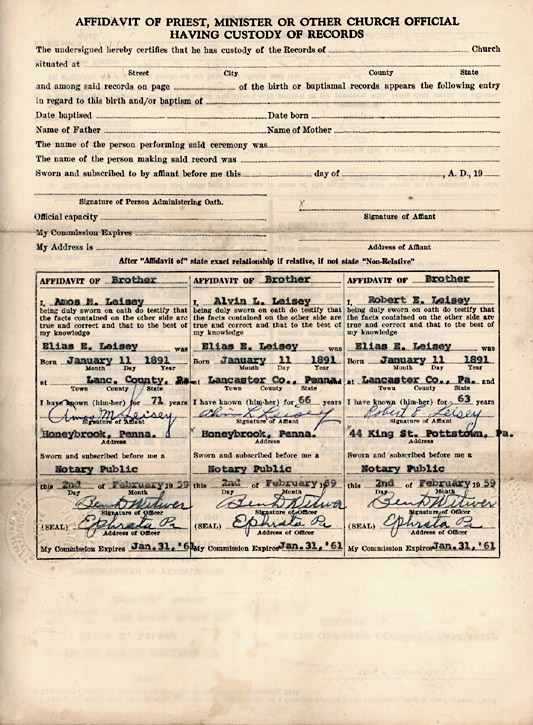 AFFIDAVIT OF PRIEST, MINISTER OR OTHER CHURCH OFFICIAL
HAVING CUSTODY OF RECORDS
The undersigned hereby certifies that he has custody of the Records of Church
situated at
Street City County State
and among said records on page of the birth or baptismal records appears the following entry
in regard to this birth and/or baptism of
Date baptised Date born
Name of Father Name of Mother
The name of the person performing said ceremony was
The name of the person making said record was
Sworn and subscribed to by affiant before me this day of , A. D., 19
x
Signature of Person Administering Oath.
Signature of Affiant
Official capacity
My Commission Expires
My Address is
Address of Affiant
After "Affidavit of" state exact relationship if relative, if not state "Non-Relative"
AFFIDAVIT OF Brother
I, Amos M. Leisey
being duly sworn on oath do testify that
the facts contained on the other side are
true and correct and that to the best of
my knowledge
Elias E. Leisey was
Born January 11 1891
Month Day Year
at Lanc. County, Pa.
Town County State
I have known (him-her) for 71 years
Amos M. Leisey
Signature of Affiant
Honeybrook, Penna.
Address
Sworn and subscribed before me a
Notary Public
this 2nd of February 19 59
Day Month
Ben D Witwer
Signature of Officer
(SEAL) Ephrata Pa
Address of Officer
My Commission Expires Jan.31,'61
AFFIDAVIT OF Brother
I, Alvin L. Leisey
being duly sworn on oath do testify that
the facts contained on the other side are
true and correct and that to the best of
my knowledge
Elias E. Leisey was
Born January 11 1891
Month Day Year
at Lancaster Co., Penna.
Town County State
I have known (him-her) for 66 years
Alvin L Leisey
Signature of Affiant
Honeybrook, Penna.
Address
Sworn and subscribed before me a
Notary Public
this 2nd of February, 59
Day Month
Ben D Witwer
Signature of Officer
(SEAL) Ephrata Pa
Address of Officer
My Commission Expires Jan.31,'61
AFFIDAVIT OF Brother
I, Robert E. Leisey
being duly sworn on oath do testify that
the facts contained on the other side are
true and correct and that to the best of
my knowledge
Elias E. Leisey was
Born January 11 1891
Month Day Year
at Lancaster Co., Pa. and
Town County State
I have known (him-her) for 63 years
Robert E. Leisey
Signature of Affiant
44 King St. Pottstown, Pa.
Address
Sworn and subscribed before me a
Notary Public
this 2nd of February 19 59
Day Month
Ben D Witwer
Signature of Officer
(SEAL) Ephrata Pa
Address of Officer
My Commission Expires Jan.31,'61